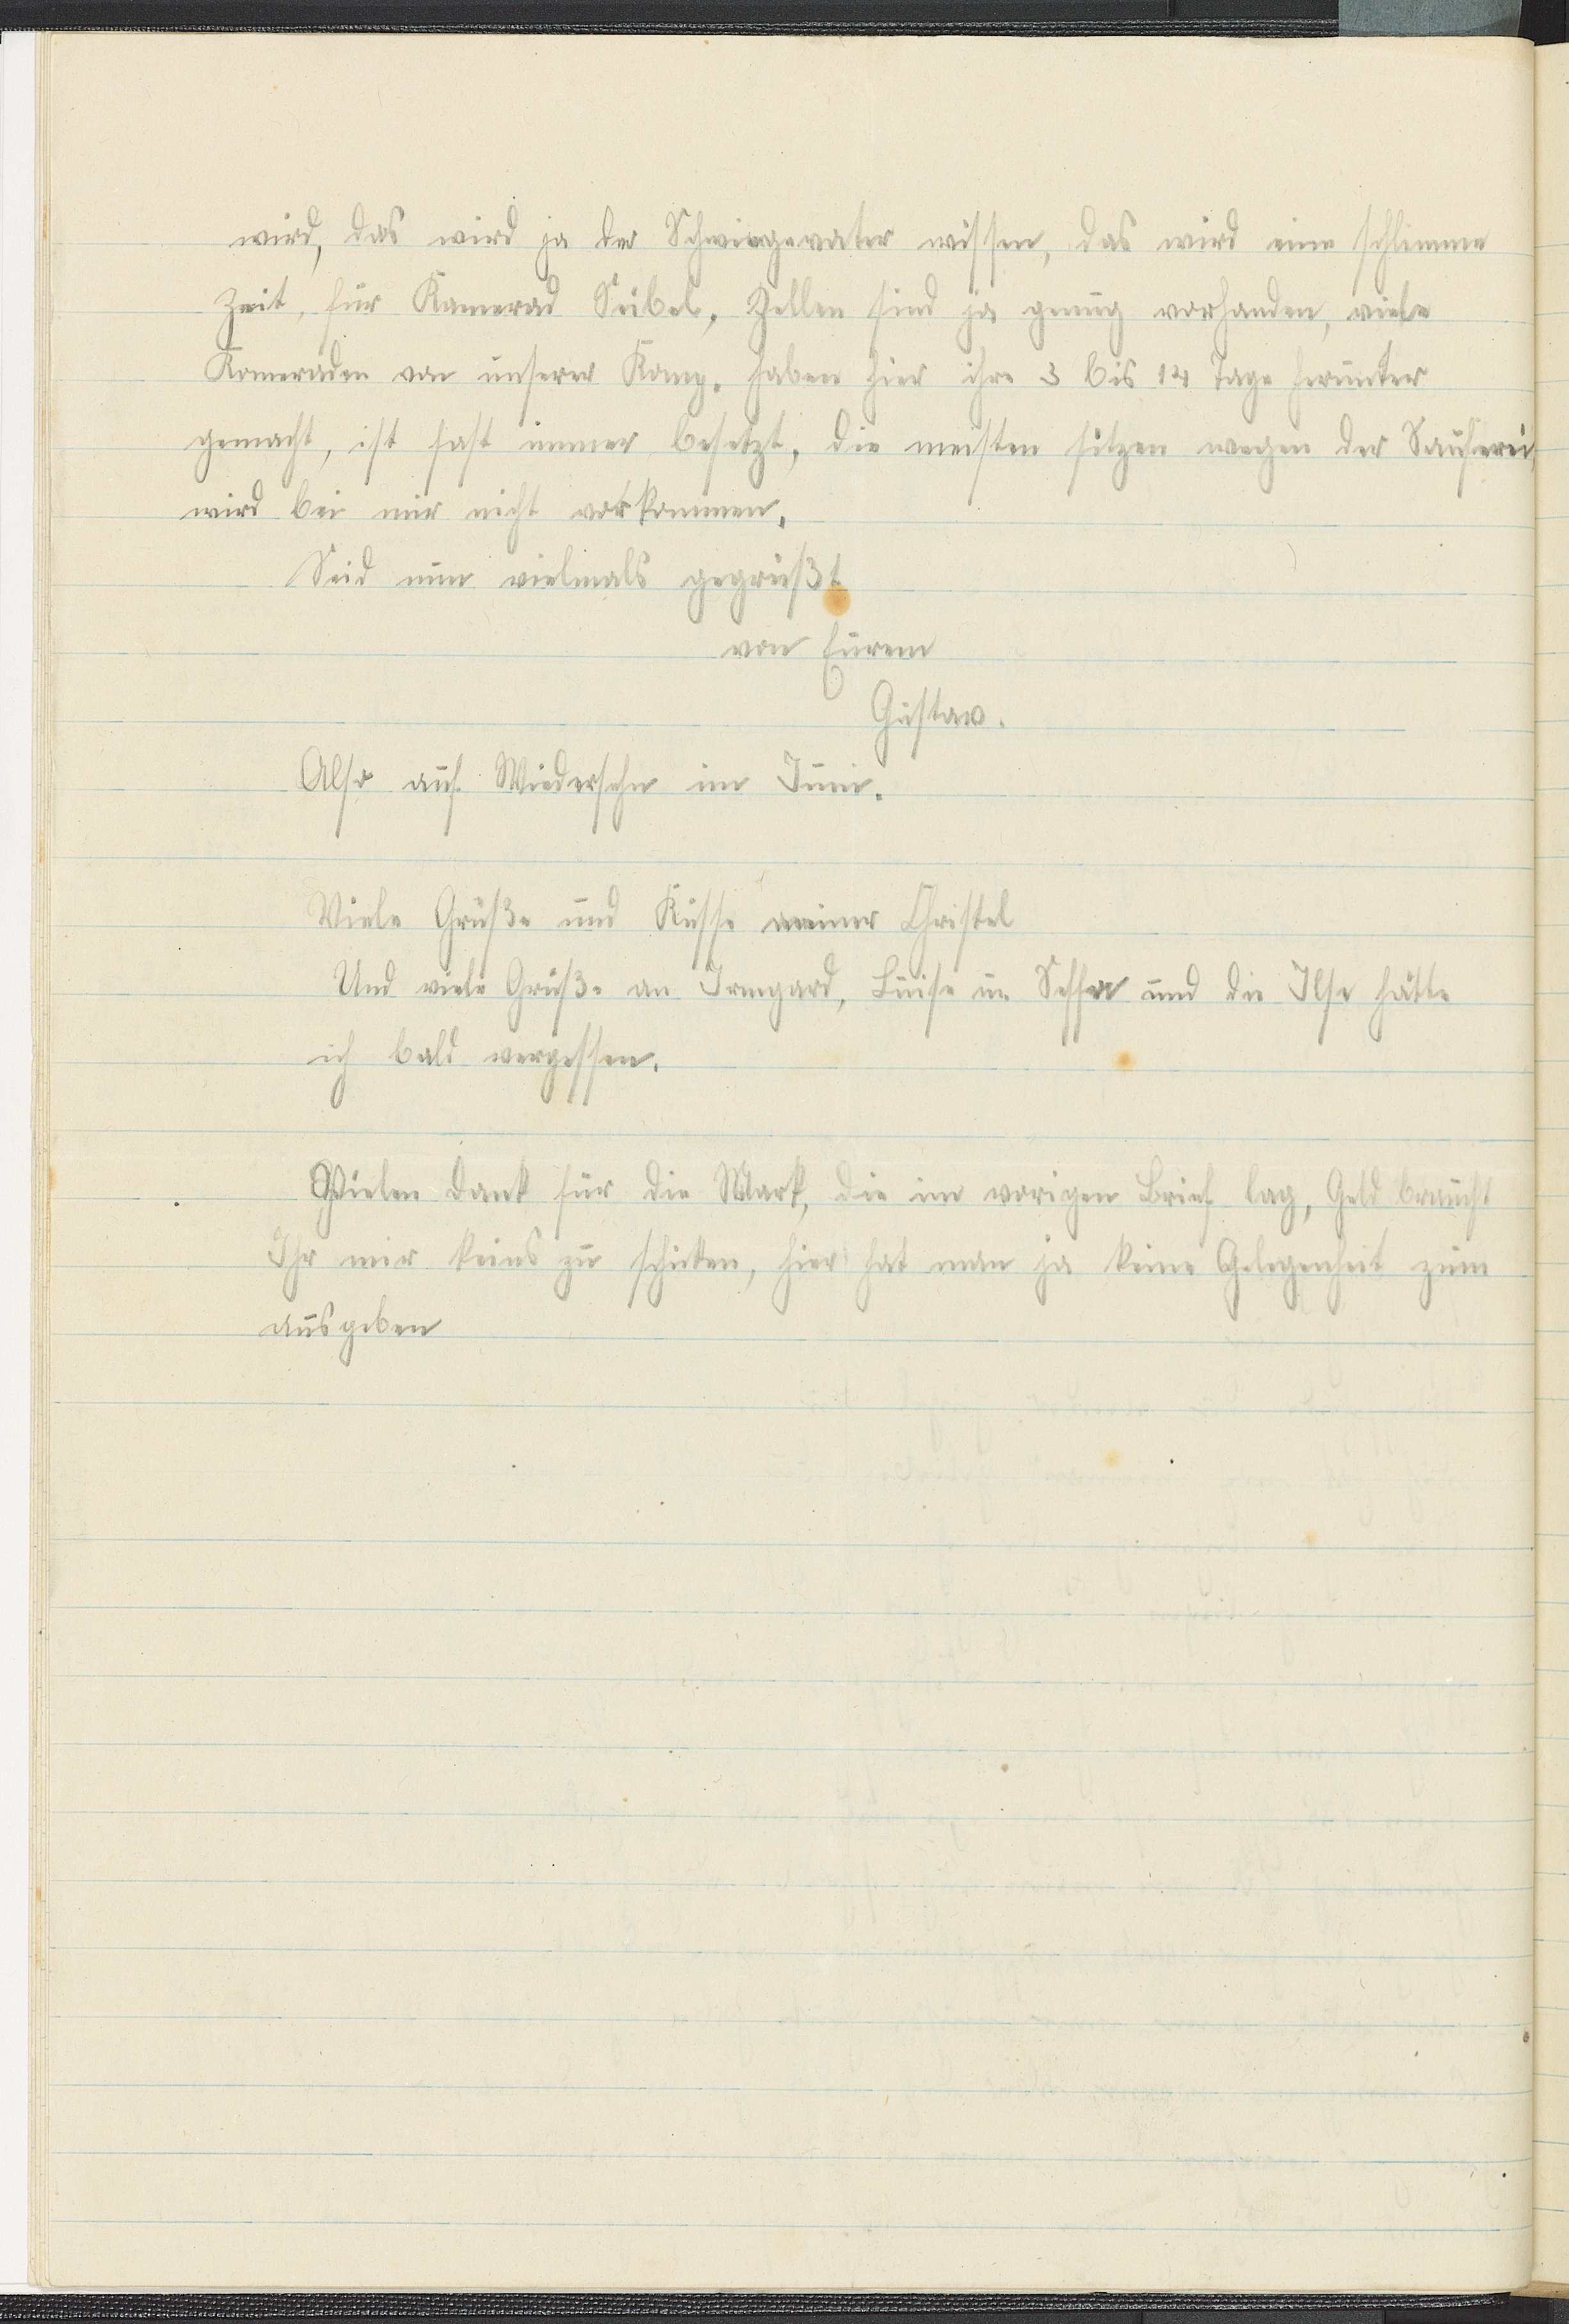 wird, das wird ja der Schwiegervater wissen, das wird eine schlimme
Zeit, für Kamerad Seibel, Zellen sind ja genug vorhanden, viele
Kameraden von unserer Komp. haben hier ihre 3 bis 14 Tage herunter
gemacht, ist fast immer besetzt, die meisten sitzen wegen der Sauferei,
wird bei mir nicht vorkommen.
Seid nun vielmals gegrüßt
von Eurem
Gustav.
Also auf Wiedersehn im Juni.
Viele Grüße und Küsse meiner Christel
Und viele Grüße an Irmgard, Luise u. und die Ilse hätte
ich bald vergessen.
Vielen Dank für die Mark, die im vorigen Brief lag, Geld braucht
Ihr mir keins zu schicken, hier hat man ja keine Gelegenheit zum
ausgeben